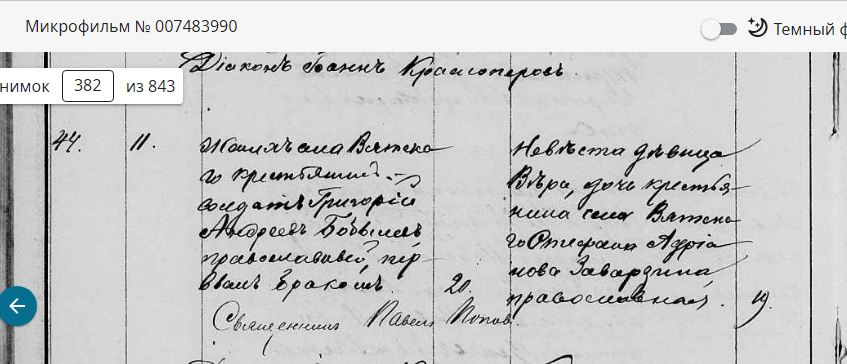 Микрофильм № 007483990
Темный ф
Дiаконъ Iоаннъ Красноперовъ
нимок 382 из 843
44.
11.
Женихъ села Вятска-
го крестьянинъ –
солдатъ Григорiй
Андреевъ Бобылевъ
православный, пер-
вымъ бракомъ.
20.
Невѣста дѣвица
Вѣра, дочь крестья-
нина села Вятска-
го Стефана Адрiа-
нова Заварзина,
православная.
19.
Священникъ Павелъ Поповъ